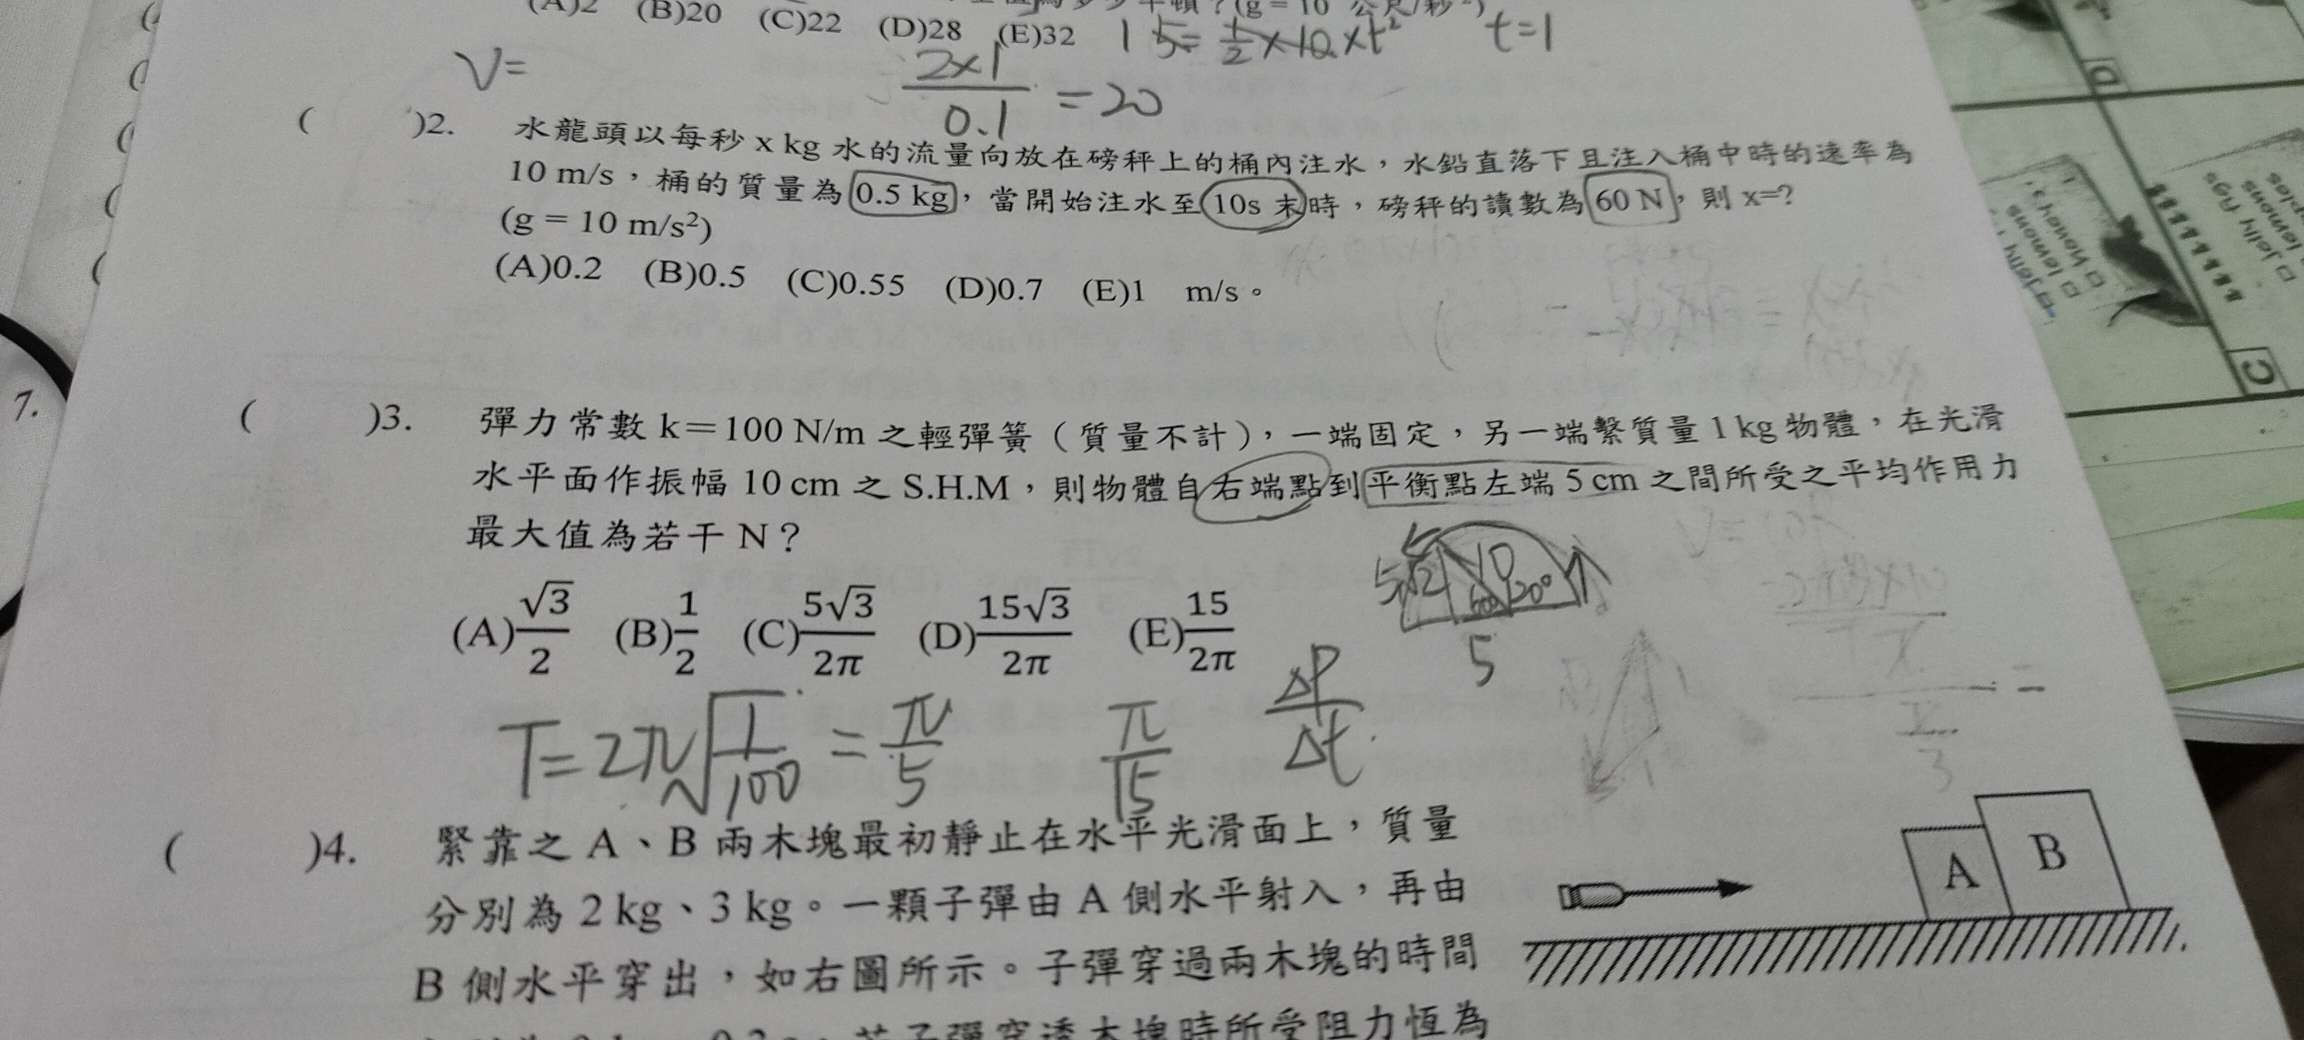 (A)2 (B)20 (C)22 (D)28 (E)32
15=½×10×t² t=1
V=
2×1
0.1
=20
( )2. 水龍頭以每秒 x kg 水的流量向放在磅秤上的桶內注水，水鉛直落下且注入桶中時的速率為
10 m/s，桶的質量為 0.5 kg，當開始注水至 10s 末時，磅秤的讀數為 60 N，則 x=?
(g = 10 m/s²)
(A)0.2 (B)0.5 (C)0.55 (D)0.7 (E)1 m/s。
7.
( )3. 彈力常數 k＝100 N/m 之輕彈簧（質量不計），一端固定，另一端繫質量 1 kg 物體，在光滑
水平面作振幅 10 cm 之 S.H.M，則物體自右端點到平衡點左端 5 cm 之間所受之平均作用力
最大值為若干 N？
(A)√3/2 (B)1/2 (C)5√3/2π (D)15√3/2π (E)15/2π
10
120°
5
T=2π√(1/100)=π/5 π/15 ΔP/Δt
( )4. 緊靠之 A、B 兩木塊最初靜止在水平光滑面上，質量
分別為 2 kg、3 kg。一顆子彈由 A 側水平射入，再由
B 側水平穿出，如右圖所示。子彈穿過兩木塊的時間
若子彈穿透木塊時所受阻力恆為
A B
D
C
□ jelly
□ lemons
□ honey
□ jelly
□ lemons